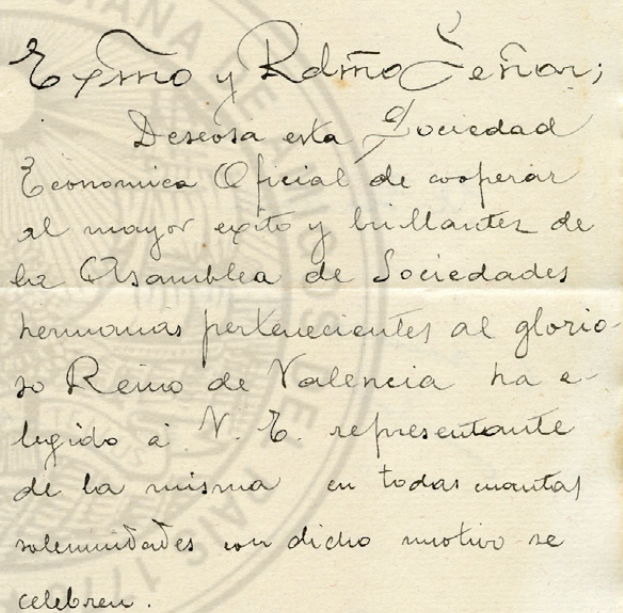 Exmo y Rdmo Señor;
Deseosa esta Sociedad
Economica Oficial de cooperar
al mayor exito y brillantez de
la Asamblea de Sociedades
hermanas pertenecientes al glorio-
so Reino de Valencia ha e-
legido á V. E. representante
de la misma en todas cuantas
solemnidades con dicho motivo se
celebren.